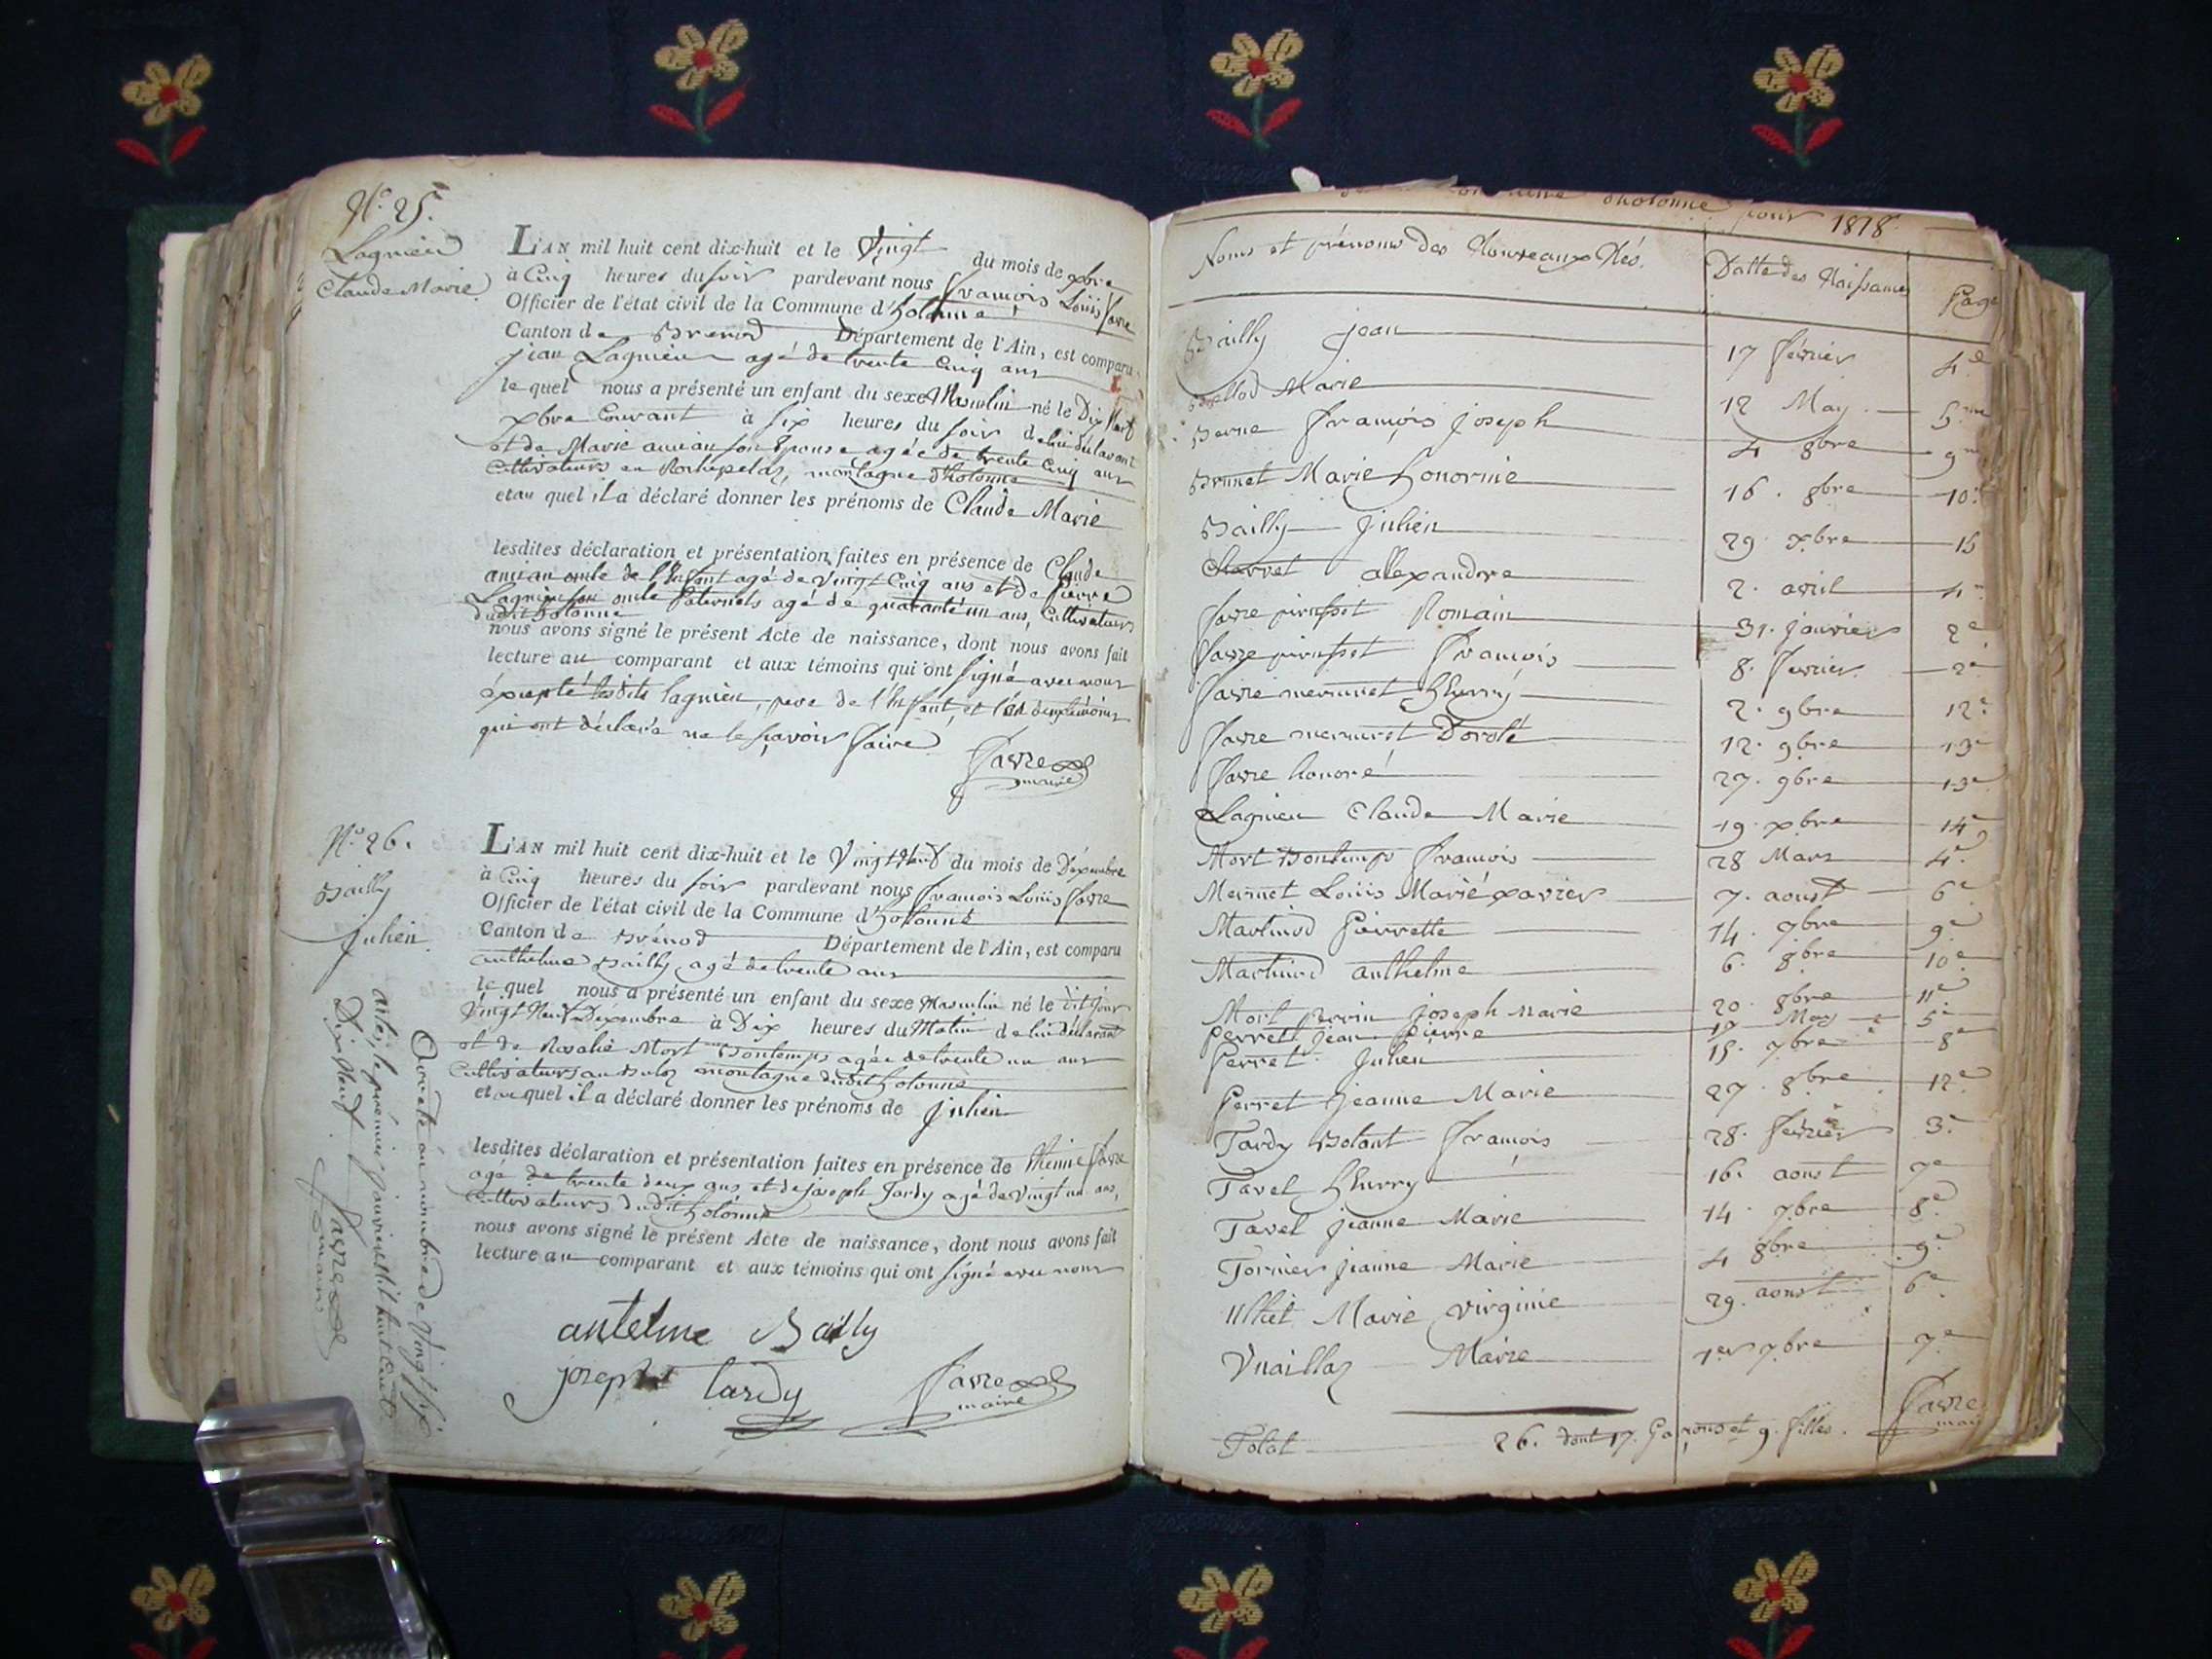 N.º 25.
Lagnieu
Claude Marie
L'AN mil huit cent dix-huit et le Vingt du mois de xbre
à Cinq heures du soir pardevant nous François Loüis favre
Officier de l'état civil de la Commune d'hotonne
Canton de Brenod Département de l'Ain, est comparu
jean Lagnieu agé de trente Cinq ans
lequel nous a présenté un enfant du sexe Masculin né le Dix Neuf
xbre Courant à six heures du soir de lui déclarant
et de Marie ancian son Epouse agée de trente Cinq ans
Cultivateurs en montagne d'hotonne
et au quel il a déclaré donner les prénoms de Claude Marie
lesdites déclaration et présentation faites en présence de Claude
ancian oncle de l'Enfant agé de Vingt Cinq ans et de Pierre
Lagnieu son oncle Paternels agé de quarante un ans, Cultivateurs
dudit hotonne
nous avons signé le présent Acte de naissance, dont nous avons fait
lecture au comparant et aux témoins qui ont signé avec nous
éxcepté lesdits lagnieu, pere de l'Enfant, et témoins
qui ont déclaré ne le sçavoir faire
favre
maire
N.º 26.
Bailly
Julien
L'AN mil huit cent dix-huit et le Vingt Neuf du mois de Déxembre
à Cinq heures du soir pardevant nous francois Loüis favre
Officier de l'état civil de la Commune d'hotonne
Canton de Brénod Département de l'Ain, est comparu
anthelme Bailly agé de trente ans
lequel nous a présenté un enfant du sexe Masculin né le dit jour
Vingt Neuf Déxembre à Dix heures du Matin de lui déclarant
et de Rosalie Mort Bontemps agée de trente un ans
Cultivateurs montagne dudit hotonne
et au quel il a déclaré donner les prénoms de Julien
lesdites déclaration et présentation faites en présence de favre
agé de trente deux ans et de joseph Tardy agé de Vingt un ans,
Cultivateurs dudit hotonne
nous avons signé le présent Acte de naissance, dont nous avons fait
lecture au comparant et aux témoins qui ont signé avec nous
antelme Bailly
joseph tardy
favre
maire
arrété au nombre de Vingt Six
actes, le prémier janvier mil huit Cent
Dix Neuf.
favre
maire
hotonne pour 1818
Noms et prénoms des Nouveaux Nés.
Datte des Naissances
Page
Bailly jean 17 fevrier 4e
Marie 12 May 5me
Berne François joseph 4 8bre 9me
Brunet Marie honorine 16. 8bre 10e
Bailly Julien 29. xbre 15
Charvet alexandre 2. avril 4e
favre Romain 31. janvier 2e
favre François 8. fevrier 2e
favre mermet thierry 2. 9bre 12e
favre mermet Doroté 12. 9bre 13e
favre honoré 27. 9bre 13e
Lagnieu Claude Marie 19. xbre 14e
Mort Bontemps francois 28 Mars 4e
Mermet Loüis Marie xavier 7. aoust 6e
Martinod Pierrette 14. 7bre 9e
Martinod anthelme 6. 8bre 10e
Mort perrin joseph marie 20. 8bre 11e
Perret jean pierre 19 May 5e
Perret Julien 15. 7bre 8e
Perret jeanne Marie 27. 8bre 12e
Tardy françois 28. fevrier 3e
Tavel thierry 16. aoust 7e
Tavel jeanne Marie 14. 7bre 8e
Tornier jeanne Marie 4 8bre 9e
Marie Virginie 29. aoust 6e
Vuaillaz Marie 1er 7bre 7e
Totat 26. dont 17. Garçons et 9. filles.
favre
maire